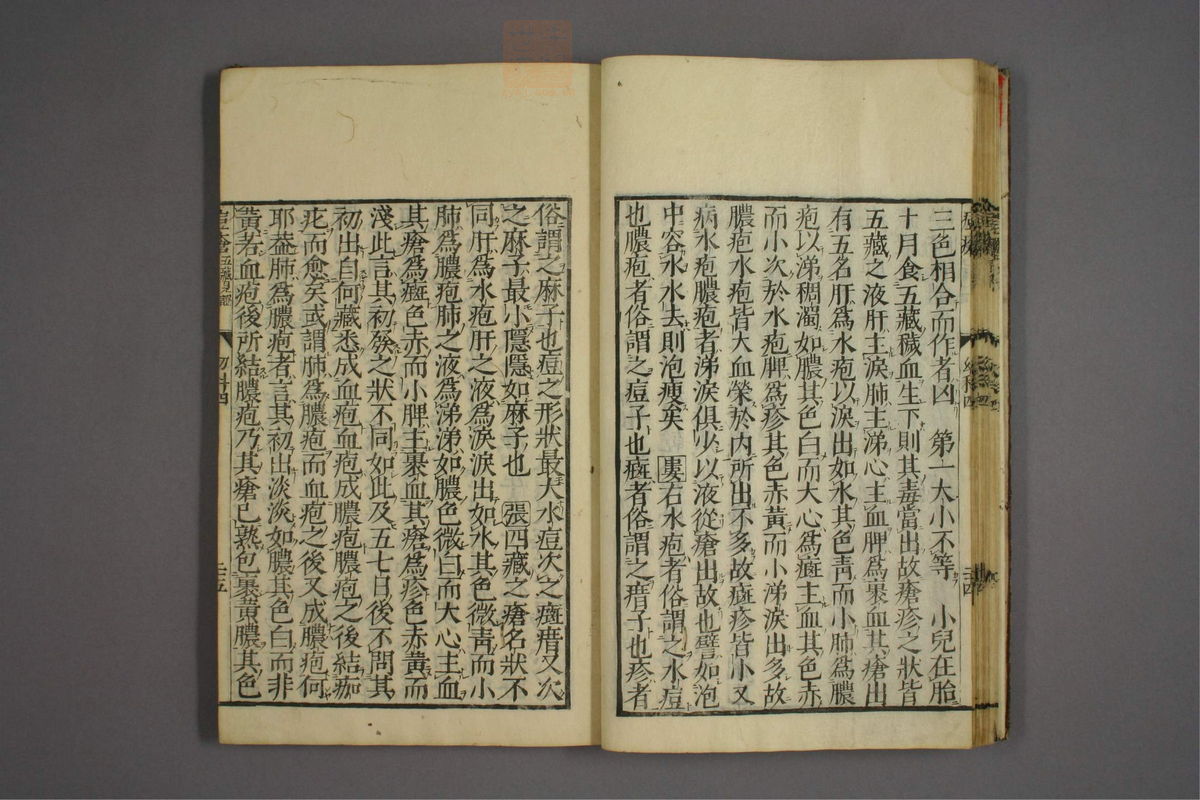 三色相合而作者凶　第一大小不等　小兒在胎
十月食五藏穢血生下則其毒當出故瘡疹之狀皆
五藏之液肝主淚肺主涕心主血脾爲裹血其瘡出
有五名肝爲水疱以淚出如水其色靑而小肺爲膿
疱以涕稠濁如膿其色白而大心爲癍主血其色赤
而小次於水疱脾爲疹其色赤黃而小涕淚出多故
膿疱水疱皆大血榮於內所出不多故癍疹皆小又
病水疱膿疱者涕淚俱少以液從瘡出故也譬如泡
中容水水去則泡瘦矣　婁右水疱者俗謂之水痘
也膿疱者俗謂之痘子也癍者俗謂之瘄子也疹者
俗謂之麻子也痘之形狀最大水痘次之癍瘄又次
之麻子最小隱隱如麻子也　張四藏之瘡名狀不
同肝爲水疱肝之液爲淚淚出如水其色微靑而小
肺爲膿疱肺之液爲涕涕如膿色微白而大心主血
其瘡爲癍色赤而小脾主裹血其瘡爲疹色赤黃而
淺此言其初發之狀不同如此及五七日後不問其
初出自何藏悉成血疱血疱成膿疱膿疱之後結痂
疕而愈矣或謂肺爲膿疱而血疱之後又成膿疱何
耶葢肺爲膿疱者言其初出淡淡如膿其色白而非
黃若血疱後所結膿疱乃其瘡已熟包裹黃膿其色